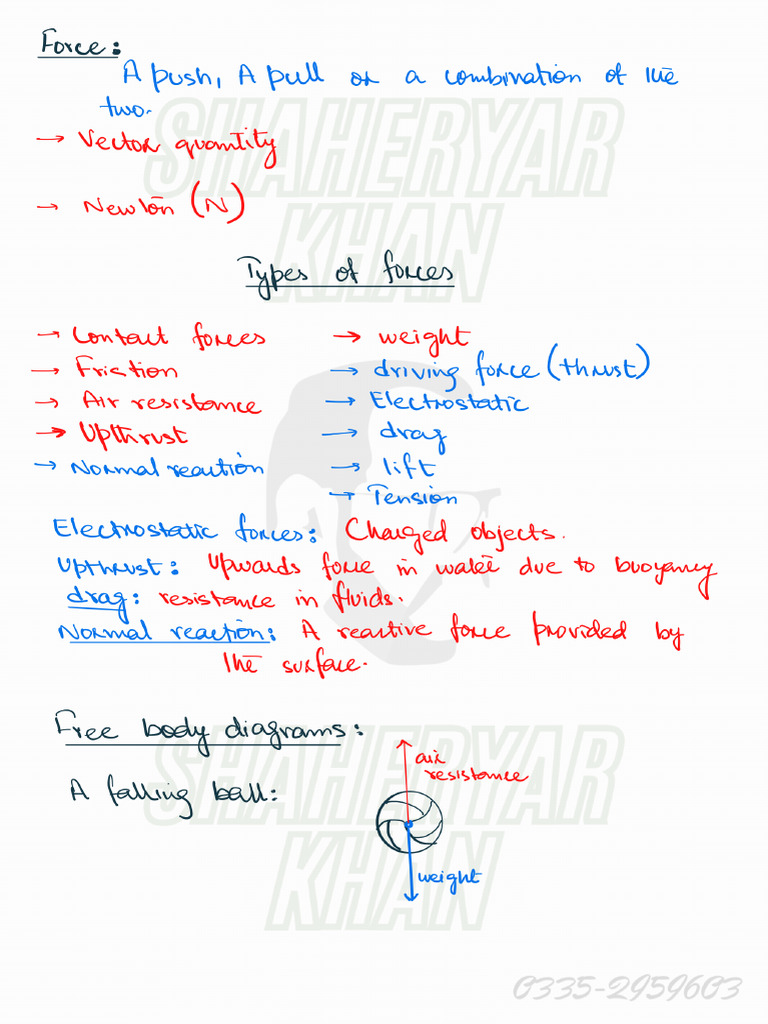 Force:
A push, A pull or a combination of the
two.
→ Vector quantity
→ Newton (N)
SHAHERYAR
KHAN
Types of forces
→ Contact forces
→ Friction
→ Air resistance
→ Upthrust
→ Normal reaction
→ weight
→ driving force (thrust)
→ Electrostatic
→ drag
→ lift
→ Tension
Electrostatic forces: Charged objects.
Upthrust: Upwards force in water due to buoyancy
drag: resistance in fluids.
Normal reaction: A reactive force provided by
the surface.
Free body diagrams:
A falling ball:
air
resistance
weight
SHAHERYAR
KHAN
0335-2959603